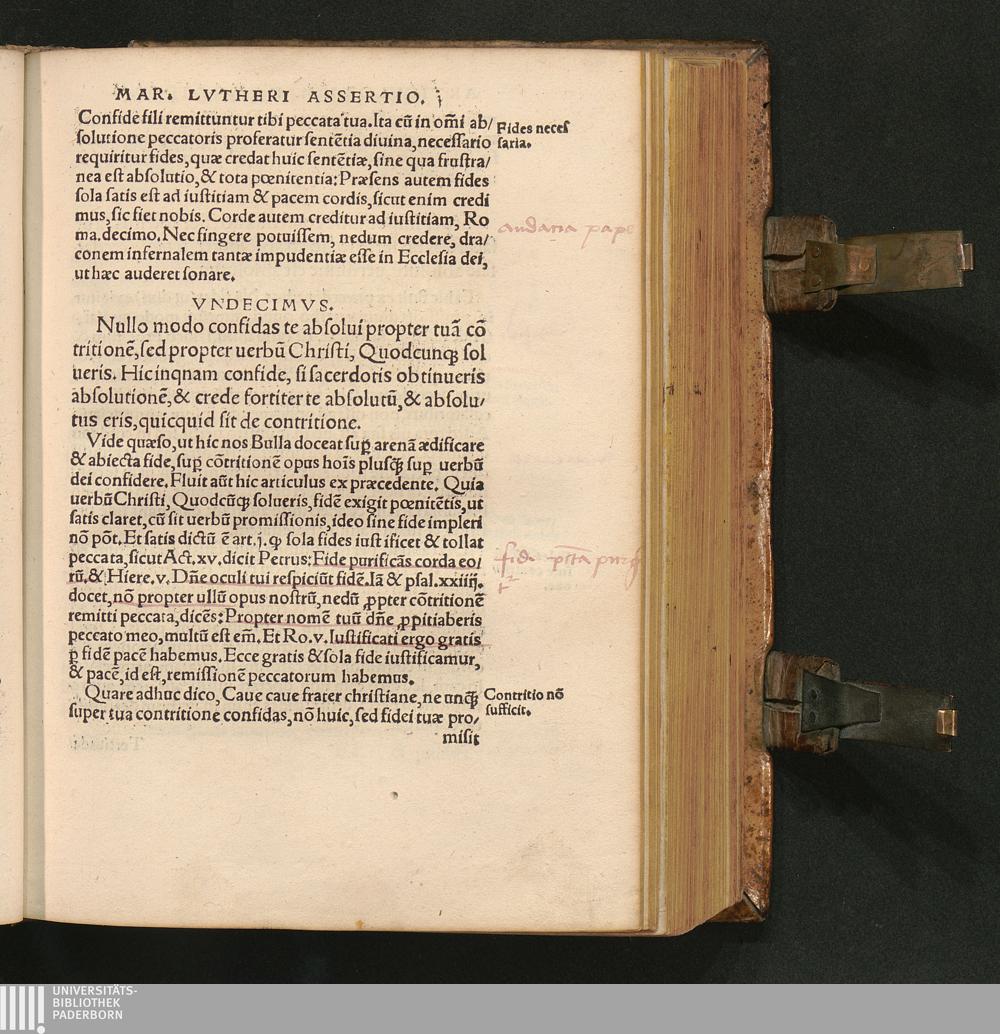 MAR. LVTHERI ASSERTIO.
Confide fili remittuntur tibi peccata tua. Ita cũ in om̃i ab/
solutione peccatoris proferatur sentẽtia diuina, necessario
requiritur fides, quæ credat huic sentẽtiæ, sine qua frustra/
nea est absolutio, & tota pœnitentia: Præsens autem fides
sola satis est ad iustitiam & pacem cordis, sicut enim credi
mus, sic fiet nobis. Corde autem creditur ad iustitiam, Ro
ma. decimo. Nec fingere potuissem, nedum credere, dra/
conem infernalem tantæ impudentiæ esse in Ecclesia dei,
ut hæc auderet sonare.
Fides necess
saria.
audatia pape
VNDECIMVS.
Nullo modo confidas te absolui propter tuã cõ
tritionẽ, sed propter uerbũ Christi, Quodcunqꝫ sol
ueris. Hic inqnam confide, si sacerdotis obtinueris
absolutionẽ, & crede fortiter te absolutũ, & absolu/
tus eris, quicquid sit de contritione.
Vide quæso, ut hic nos Bulla doceat suꝑ arenã ædificare
& abiecta fide, suꝑ cõtritionẽ opus hoĩs plusqꝫ̃ suꝑ uerbũ
dei confidere. Fluit aũt hic articulus ex præcedente. Quia
uerbũ Christi, Quodcũqꝫ solueris, fidẽ exigit pœnitẽtis, ut
satis claret, cũ sit uerbũ promissionis, ideo sine fide impleri
nõ põt. Et satis dictũ ẽ art. j. ꝙ sola fides iustificet & tollat
peccata, sicut Act. xv. dicit Petrus: Fide purificãs corda eo/
rũ. & Hiere. v. Dñe oculi tui respiciũt fidẽ. Iã & psal. xxiiij.
docet, nõ propter ullũ opus nostrũ, nedũ ꝓpter cõtritionẽ
remitti peccata, dicẽs: Propter nomẽ tuũ dñe ꝓpitiaberis
peccato meo, multũ est em̃. Et Ro. v. Iustificati ergo gratis
ꝑ fidẽ pacẽ habemus. Ecce gratis & sola fide iustificamur,
& pacẽ, id est, remissionẽ peccatorum habemus.
Quare adhuc dico, Caue caue frater christiane, ne unqꝫ̃
super tua contritione confidas, nõ huic, sed fidei tuæ pro/
misit
Contritio nõ
sufficit.
UNIVERSITÄTS-
BIBLIOTHEK
PADERBORN